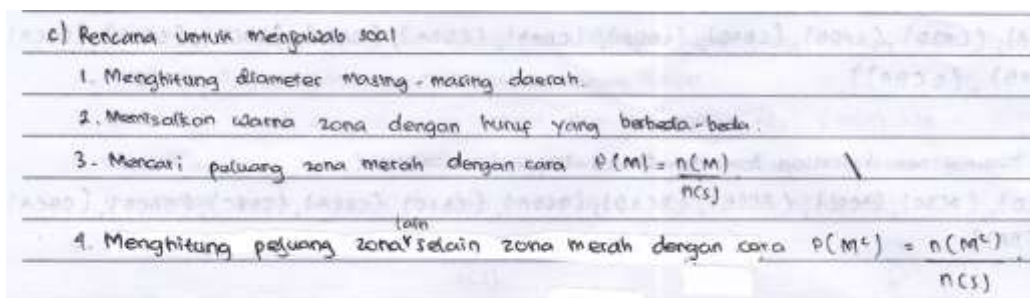 c) Rencana untuk menjawab soal
1. Menghitung diameter masing-masing daerah.
2. Memisalkan warna zona dengan huruf yang berbeda-beda.
3. Mencari peluang zona merah dengan cara P(M) = n(M)/n(S).
4. Menghitung peluang zona lain selain zona merah dengan cara P(Mᶜ) = n(Mᶜ)/n(S)